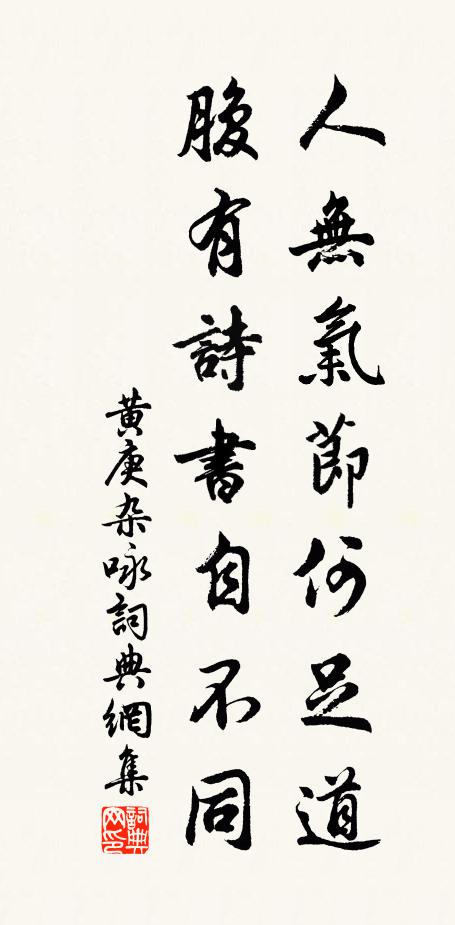 人無氣節何足道
腹有詩書自不同
黄庚杂咏詞典網集
詞典
网印